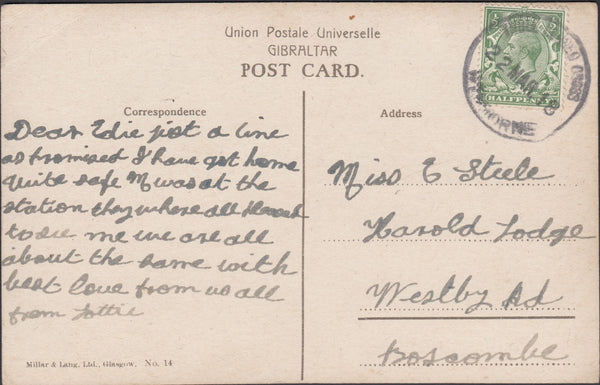 Union Postale Universelle
GIBRALTAR
POST CARD.
Correspondence
Dear Edie just a line
as promised I have got home
quite safe M was at the
station they where all pleased
to see me we are all
about the same with
best love from us all
from Lottie
Millar & Lang, Ltd., Glasgow. No. 14
Address
Miss E Steele
Harold Lodge
Westby Rd
Boscombe
HALFPENNY